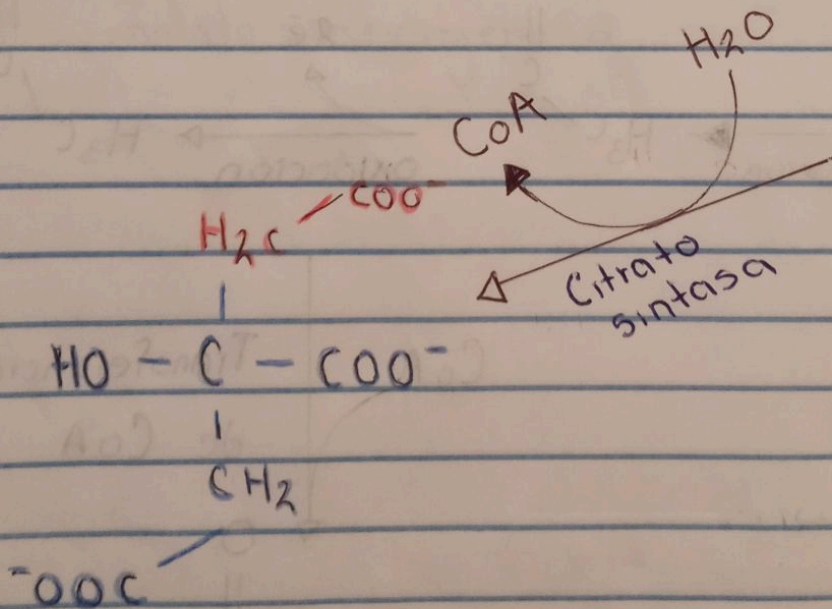 H2O
CoA
COO-
H2C
Citrato
sintasa
HO - C - COO-
CH2
-OOC